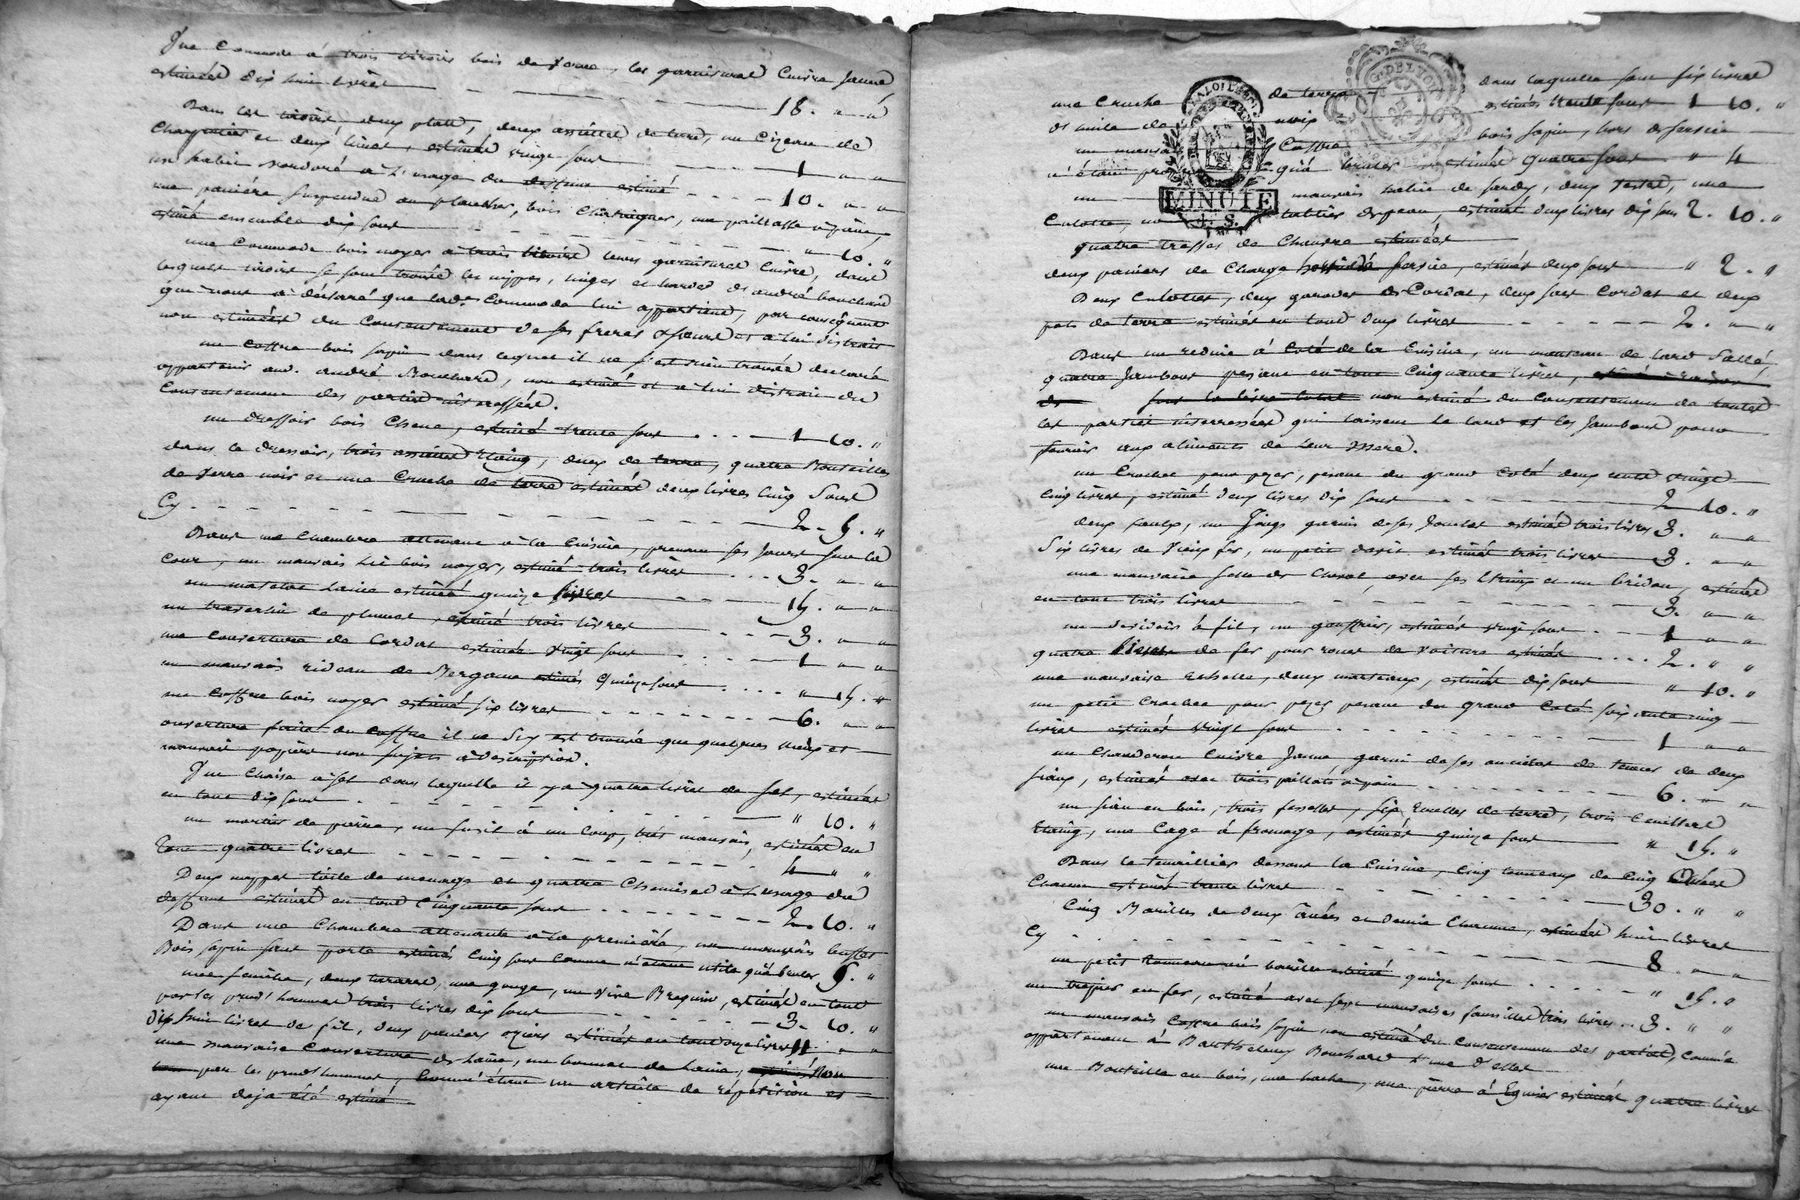 Une Commode à trois tiroirs bois de noier, les garnitures Cuivre Jaune
estimée dix huit livres 18. " "
Dans les tiroirs deux plats, deux assiettes de terre, un Cizeau de
Charpentier et deux limes, estimés vingt sous 1 " "
un habit à l'usage du deffunt estimé 10. " "
une panière suspendue au plancher, bois Chataigner, une paillasse
estimé ensemble dix sous " 10. "
une Commode bois noyer à trois tiroirs leurs garnitures Cuivre, dans
lesquels tiroirs se sont trouvé les nippes, linges et hardes de andré bouchard
qui nous a déclaré que lade. Commode lui appartient, par conséquent
non estimées du Consentement de ses freres & soeurs et à lui distrait
un coffre bois sapin dans lequel il ne s'est rien trouvé declaré
appartenir aud. andré Bouchard, non estimé et à lui distrait du
Consentement des parties intéressées.
un dressoir bois Chene, estimé trente sous 1 10. "
dans le dressoir, trois assiettes Etaing, deux de terre, quatre Bouteilles
de verre noir et une Cruche de terre estimés deux livres Cinq Sous
Cy 2. 5. "
Dans une Chambre attenante à la Cuisine, prenant ses Jours sur la
Cour, un mauvais lit bois noyer, estimé trois livres 3. " "
un matelas laine estimé quinze livres 15. " "
un traversin de plumes, estimé trois livres 3. " "
une Couverture de Cordat estimée vingt sous 1 " "
un mauvais rideau de Bergame estimé Quinze sous " 15. "
un coffre bois noyer estimé six livres 6. " "
ouverture faite du Coffre il ne s'y est trouvé que quelques
mauvais papiers non sujets à description.
Une Chaise à sel dans laquelle il y a quatre livres de sel, estimées
en tout dix sous " 10. "
un mortier de pierre, un fusil à un coup, très mauvais, estimés en
tout quatre livres 4 " "
Deux nappes toile de menage et quatre Chemises à l'usage du
deffunt estimées en tout Cinquante sous 2. 10. "
Dans une Chambre attenante à la première, un mauvais buffet
Bois sapin sans porte estimé Cinq sous Comme n'étant utile qu'à bruler 5. "
une faucille, deux, une gouge, un Vire Brequin, estimés en tout
par les prud'hommes trois livres dix sous 3. 10. "
Dix huit livres de fil, deux paniers oziers estimés en tout onze livres 11 " "
une mauvaise Couverture de laine, un bonnet de laine,
par les prud'hommes, Comme étant un article de répétition et
ayant deja été estimé
une Cruche de terre dans laquelle sont six livres
d'huile de noix estimés trente sous 1 10. "
un mauvais Coffre bois sapin, hors de service
n'étant qu'à bruler estimé quatre sous " 4
un mauvais, deux vestes, une
Culotte, un tablier de peau, estimés deux livres dix sous 2. 10. "
quatre tresses de Chanvre estimées
deux paniers de Charge service, estimés deux sous " 2. "
Deux Culottes, deux de Cordat, deux sacs Cordat et deux
pots de terre estimés en tout deux livres 2. " "
Dans un reduit à Coté de la Cuisine, un morceau de lard Sallé,
quatre Jambons pesant en tout Cinquante livres,
non estimé du Consentement de toutes
les parties interressées qui laissent le lard et les Jambons pour
servir aux alimants de leur Mere.
un Crochet pour pezer, pesant du grand Coté deux cents vingt
Cinq livres, estimé deux livres dix sous 2 10. "
deux faulx, un Joug garni de ses Jouclat estimés trois livres 3. " "
Six livres de vieux fer, un petit estimés trois livres 3. " "
une mauvaise selle de Cheval, avec ses Etriers et un bridon, estimés
en tout trois livres 3. " "
un devidoir à fil, un gouffrier, estimés vingt sous 1 " "
quatre de fer pour roues de voiture estimés 2. " "
une mauvaise Echelle, deux marteaux, estimés dix sous " 10. "
un petit Crochet pour pezer pesant du grand Coté soixante cinq
livres estimé vingt sous 1 " "
un Chauderon Cuivre Jaune, garni de ses de deux
siaux, estimés avec trois paillats à pain 6. " "
un siau en bois, trois fesselles, six Ecuelles de terre, trois Cueilleres
Etaing, une Cage à fromage, estimés quinze sous " 15. "
Dans le tenaillier dessous la Cuisine, Cinq tonneaux de Cinq Anées
Chacun estimés trente livres 30. " "
Cinq Barilles de deux anées et demie Chacune, estimées huit livres
Cy 8 " "
un petit tonneau ou barille estimé quinze sous " 15. "
un trepier en fer, estimé avec mauvaises faucilles trois livres 3. " "
un mauvais Coffre bois sapin non estimé du Consentement des parties, Comme
appartenant à Barthelemy Bouchard l'une d'elles
une Bouteille en bois, une hache, une pierre à Eguiser estimés quatre livres
MINUTE